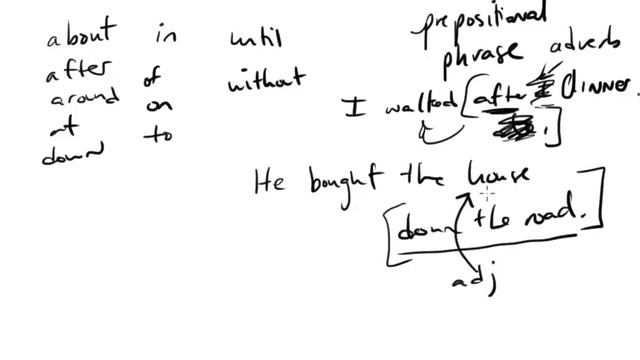 about in until
after of without
around on
at to
down
prepositional
phrase adverb
I walked [after dinner.
.]
He bought the house
[down the road.]
adj